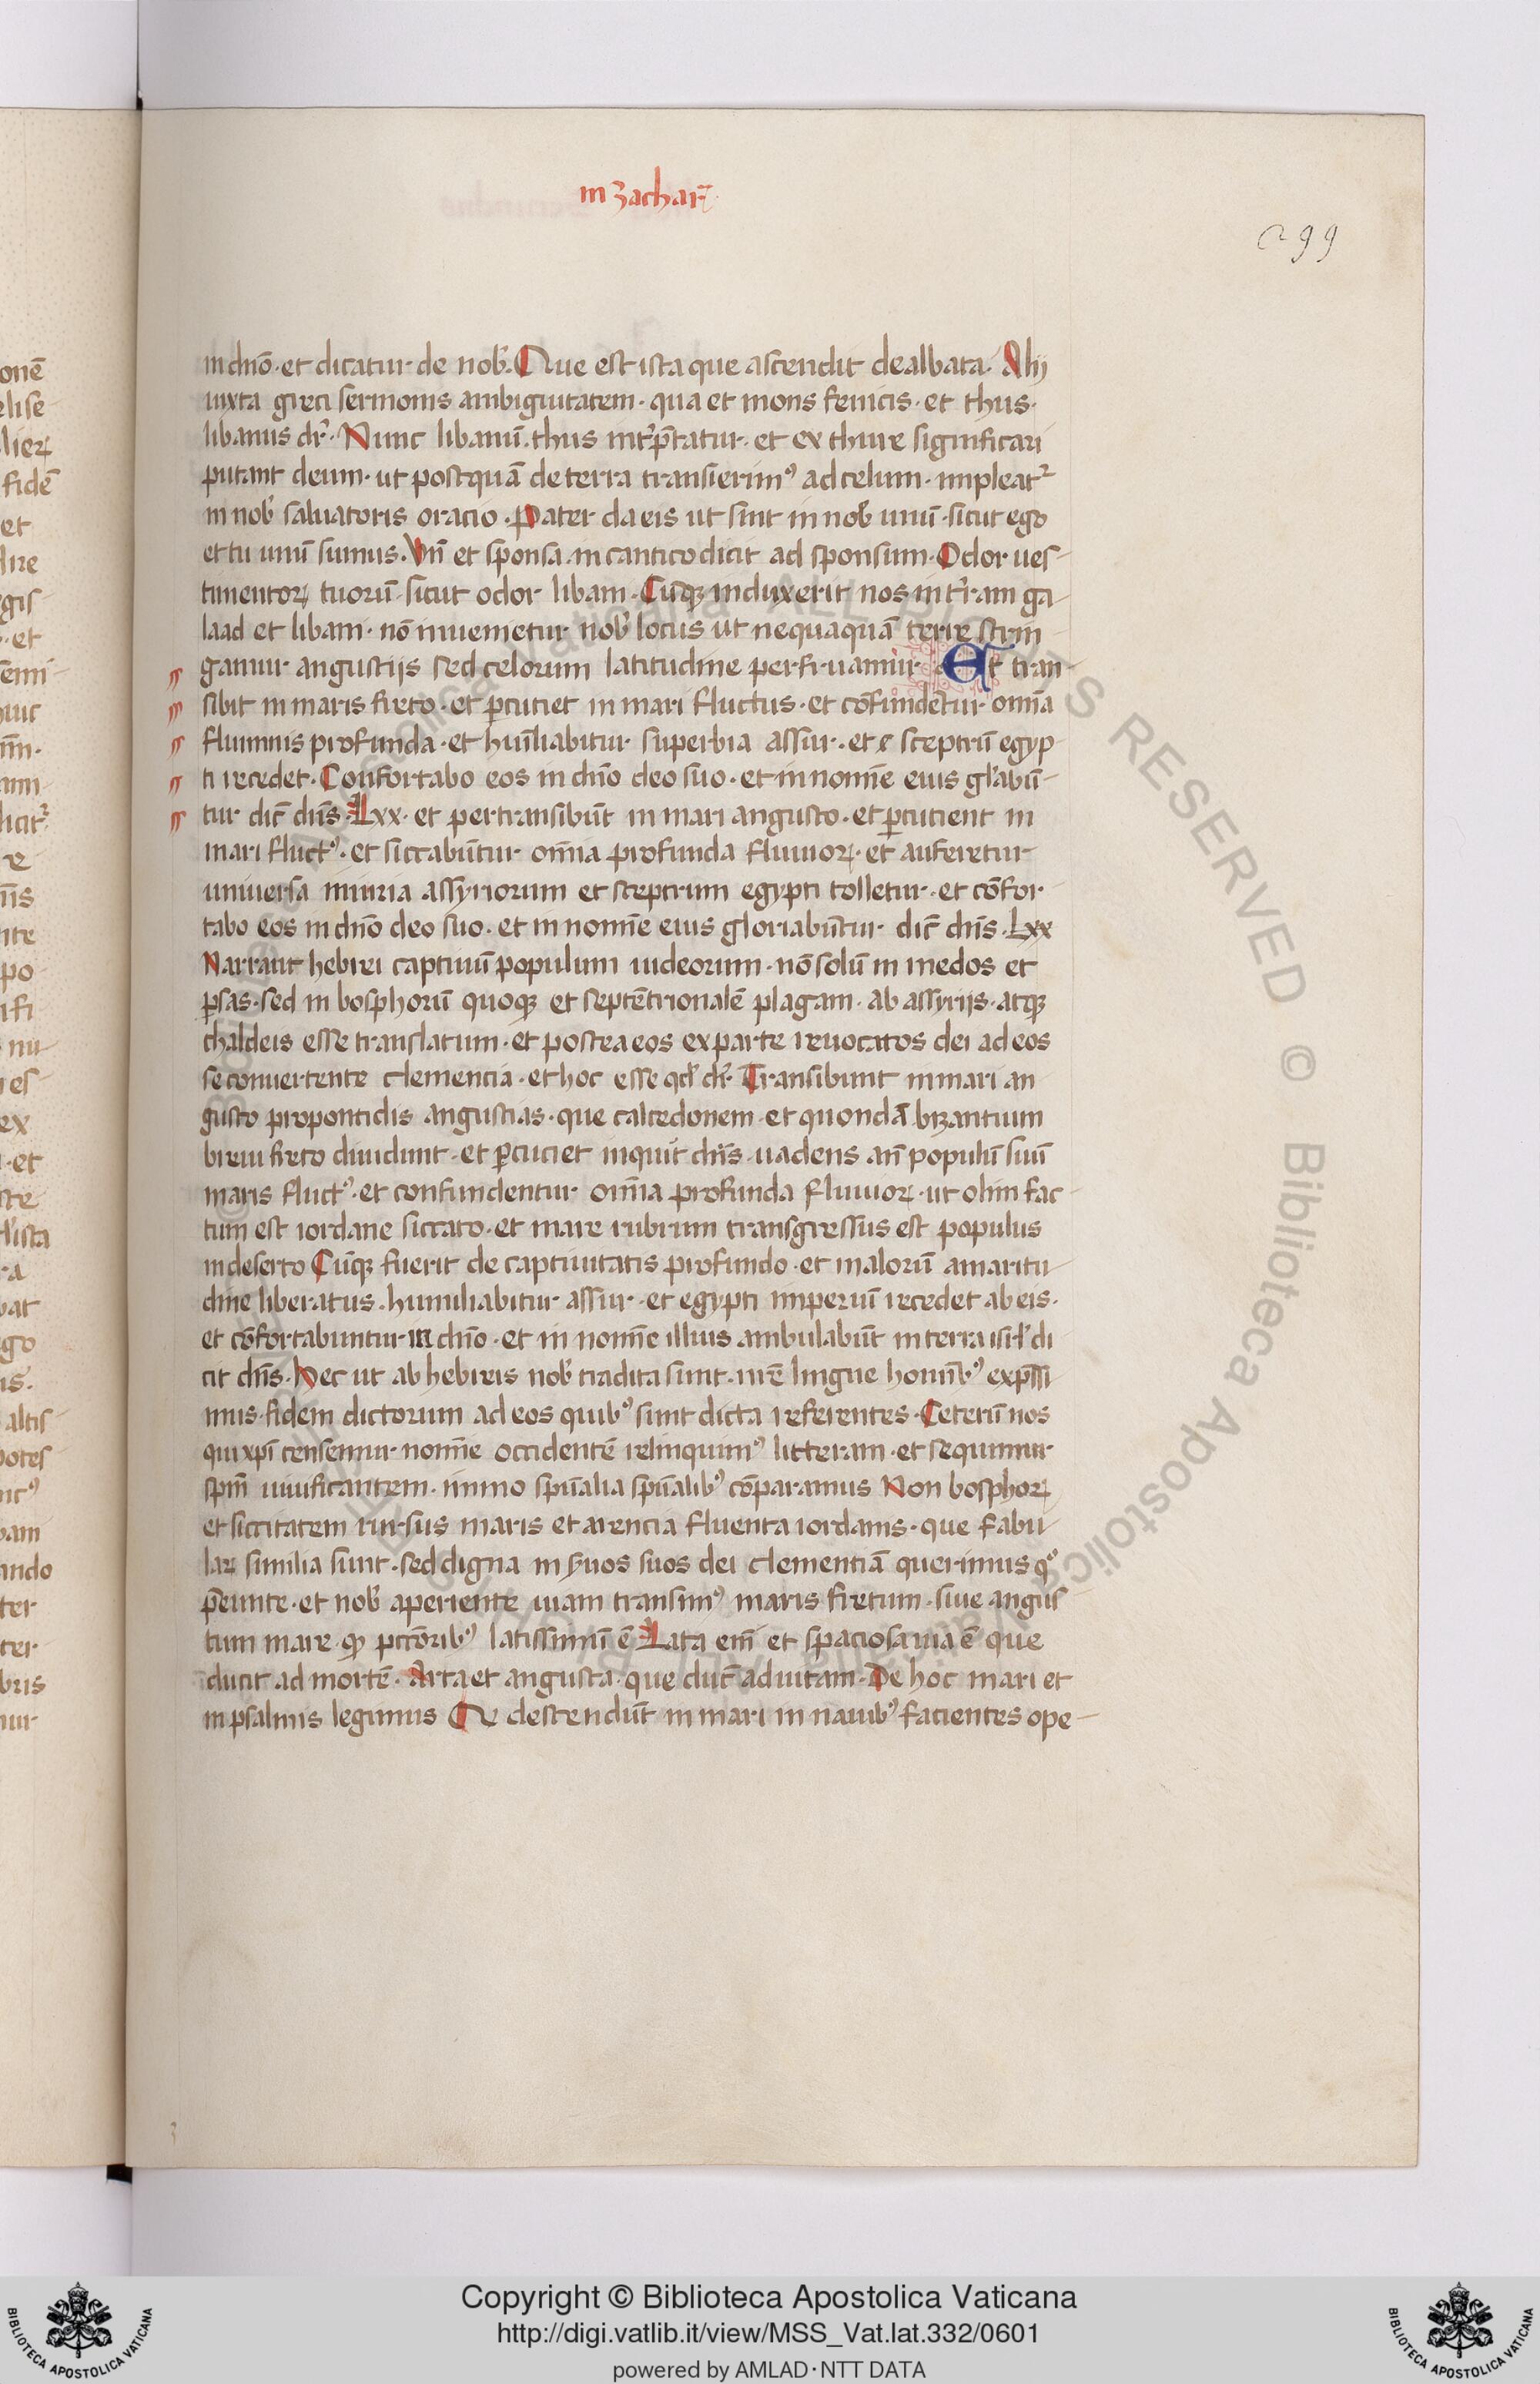 in zachar̄
299
in dn̄o · et dicatur de nob̄ · Que est ista que ascendit dealbata · Alij
iuxta greci sermonis ambiguitatem · qua et mons fenicis · et thus ·
libanus dr̄ · Nunc libanū · thus int̄p̄tatur · et ex thure significari
putant deum · ut postquā de terra transierim⁹ ad celum · impleat᷑
in nob̄ saluatoris oracio · Pater da eis ut sint in nob̄ unū · sicut ego
et tu unū sumus · Vn̄ et sponsa in cantico dicit ad sponsum · Odor ues-
timentoꝝ tuorū · sicut odor libani · Cūqꝫ induxerit nos in t̄ram ga-
laad et libani · nō inuenietur nob̄ locus ut nequaquā terre strin
gamur angustijs sed celorum latitudine perfruamur · Et tran-
sibit in maris freto · et ꝑcutiet in mari fluctus · et cōfundētur om̄ia
fluminis profunda · et huīliabitur superbia assur · et sceptrū egyp-
ti recedet · Confortabo eos in dn̄o deo suo · et in nomīe eius gl̄abū-
tur dic̄ dn̄s · Lxx · et pertransibūt in mari angusto · et ꝑcutient in
mari fluct⁹ · et siccabūtur om̄ia profunda fluuioꝝ · et auferetur
universa iniuria assyriorum et sceptrum egypti tolletur · et cōfor-
tabo eos in dn̄o deo suo · et in nomīe eius gloriabūtur dic̄ dn̄s · Lxx
Narrant hebrei captiuū populum iudeorum · nō solū in medos et
ꝑsas · sed in bosphorū quoqꝫ et septētrionalē plagam · ab assyrijs · atqꝫ
chaldeis esse translatum · et postea eos ex parte reuocatos dei ad eos
se conuertente clemencia · et hoc esse qd̄ dr̄ · Transibunt in mari an
gusto propontidis angustias · que calcedonem · et quondā bizantium
breui freto diuidunt · et ꝑcuciet inquit dn̄s · uadens an̄ populū suū
maris fluct⁹ · et confundentur om̄ia profunda fluuioꝝ · ut olim fac-
tum est iordane siccato · et mare rubrum transgressus est populus
in deserto Cūqꝫ fuerit de captiuitatis profundo · et malorū amaritu-
dine liberatus · humiliabitur assur · et egypti imperiū recedet ab eis ·
et cōfortabuntur in dn̄o · et in nomīe illius ambulabūt in terra isr̄l di
cit dn̄s · Hec ut ab hebreis nob̄ tradita sunt · nr̄e lingue homīb⁹ exp̄ssi
mus · fidem dictorum ad eos quib⁹ sunt dicta referentes · Ceterū nos
qui xp̄i censemur nomīe occidentē relinquim⁹ litteram · et sequimur
sp̄m uiuificantem · immo sp̄ualia sp̄ualib⁹ cōparamus Non bosphoꝝ
et siccitatem rursus maris et arencia fluenta iordanis · que fabu-
laꝝ similia sunt · sed digna in s̄uos suos dei clementiā querimus q°
p̄eunte · et nob̄ aperiente uiam transim⁹ maris fretum · siue angus-
tum mare · qꝫ pccōrib⁹ latissimū ē Lata em̄ et spaciosa uia ē que
ducit ad mortē · Arta et angusta · que ducit ad uitam · De hoc mari et
in psalmis legimus Qui descendūt in mari in nauib⁹ facientes ope-
Copyright © Biblioteca Apostolica Vaticana
http://digi.vatlib.it/view/MSS_Vat.lat.332/0601
powered by AMLAD·NTT DATA